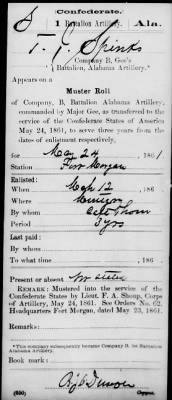 Confederate.
S 1 Battalion Artillery. Ala.
T. J. Spinks
Company B, Gee's
Battalion, Alabama Artillery.*
Appears on a
Muster Roll
of Company, B, Battalion Alabama Artillery,
commanded by Major Gee, as transferred to the
service of the Confederate States of America
May 24, 1861, to serve three years from the
dates of enlistment respectively,
for May 24, 1861
Station Fort Morgan
Enlisted:
When Mch 12, 186
Where
By whom
Period 3 yrs
Last paid:
By whom
To what time , 186 .
Present or absent not stated
REMARK: Mustered into the service of the
Confederate States by Lieut. F. A. Shoup, Corps
of Artillery, May 24, 1861. See Orders No. 62,
Headquarters Fort Morgan, dated May 23, 1861.
Remarks:
*This company subsequently became Company B, 1st Battalion
Alabama Artillery.
Book mark:
(650) Copyist.